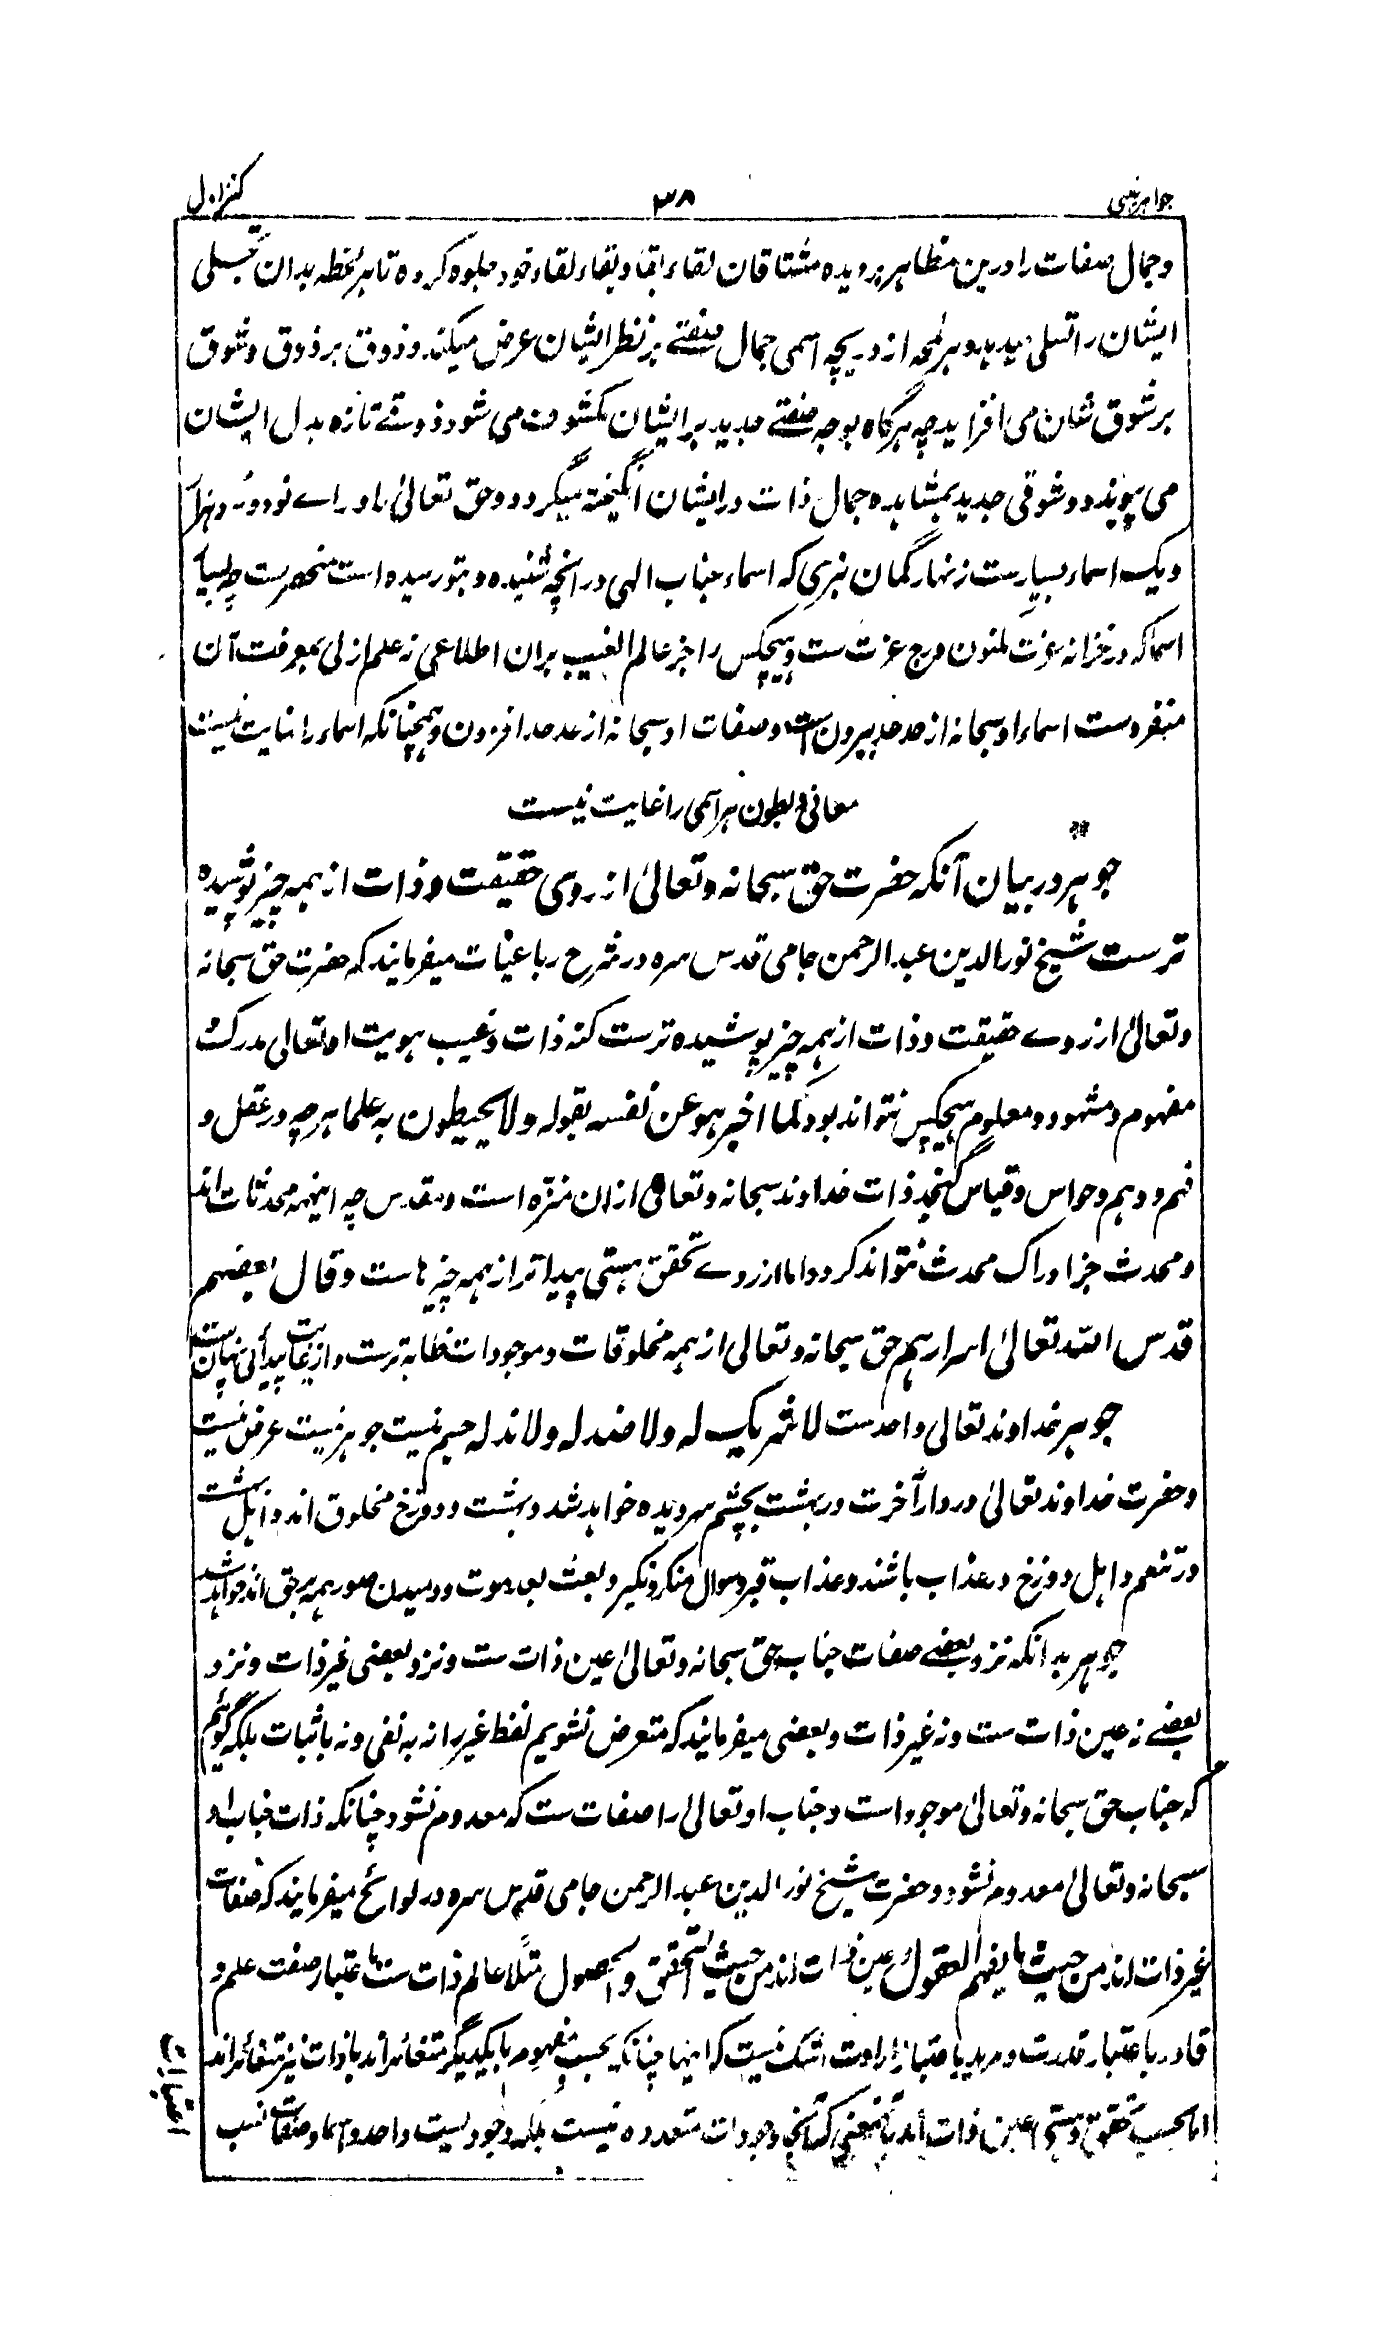 جواہر غیبی ۳۸ کنز اول
وجمال صفات را درین مظاہر بر دیدہ مشتاقان لقاء بقا و بقاء لقاء خود جلوہ کردہ تا ہر لحظہ بدان تجلی
ایشان را تسلی میدہد و ہر لمحہ از دریچہ اسمی جمال صفتے بر نظر ایشان عرض میکند و ذوق بر ذوق و شوق
بر شوق شان می افزاید چہ ہر گاہ بوجہ صفتے جدید بر ایشان مکشوف می شود ذوقے تازہ بدل ایشان
می پیوندد و شوقی جدید بمشاہدہ جمال ذات در ایشان انگیختہ میگردد و حق تعالیٰ را ورائے نود و نہ و ہزار
و یک اسماء بسیارست زنہار گمان نبری کہ اسماء جناب الہی در انچہ شنیدہ و بتو رسیدہ است منحصرست چہ بسیار
اسما کہ در خزانہ عزت مکنون درج عزت ست و ہیچکس را جز عالم الغیب بران اطلاعی نہ علم ازلی بمعرفت آن
منفردست اسماء او سبحانہ از حد حد بیرون است و صفات او سبحانہ از عد عد افزون و ہمچنانکہ اسماء را نہایت نیست
معانی و بطون ہر اسمی را غایت نیست
جوہر در بیان آنکہ حضرت حق سبحانہ و تعالیٰ از روی حقیقت و ذات از ہمہ چیز پوشیدہ
ترست شیخ نور الدین عبد الرحمن جامی قدس سرہ در شرح رباعیات میفرمایند کہ حضرت حق سبحانہ
و تعالیٰ از روے حقیقت و ذات از ہمہ چیز پوشیدہ ترست کنہ ذات و غیب ہویت او تعالی مدرک و
مفہوم و مشہود و معلوم ہیچکس نتواند بود کما اخبر ہو عن نفسہ بقولہ ولا یحیطون بہ علما ہر چہ در عقل و
فہم و وہم و حواس و قیاس گنجد ذات خداوند سبحانہ و تعالی ازان منزہ است و مقدس چہ اینہمہ محدثات اند
و محدث جز ادراک محدث نتواند کرد و اما از روے تحقق ہستی پیدا تر از ہمہ چیز ہا ست و قال بعضہم
قدس اللہ تعالیٰ اسرارہم حق سبحانہ و تعالی از ہمہ مخلوقات و موجودات ظاہر ترست و از غایت پیدائی نہان ست
جوہر خداوند تعالی واحدست لا شریک لہ ولا ضد لہ ولا ند لہ جسم نیست جوہر نیست عرض نیست
و حضرت خداوند تعالیٰ در دار آخرت در بہشت بچشم سر دیدہ خواہد شد و بہشت و دوزخ مخلوق اند و اہل بہشت
در تنعم و اہل دوزخ در عذاب باشند و عذاب قبر و سوال منکر و نکیر و بعث بعد موت و دمیدن صور ہمہ بر حق اند خواہد شد
جوہر بدانکہ نزد بعضے صفات جناب حق سبحانہ و تعالیٰ عین ذات ست و نزد بعضی غیر ذات و نزد
بعضے نہ عین ذات ست و نہ غیر ذات و بعضی میفرمایند کہ متعرض نشویم لفظ غیر را نہ بہ نفی و نہ باثبات بلکہ گوئیم
کہ جناب حق سبحانہ و تعالیٰ موجود است و جناب او تعالیٰ را صفات ست کہ معدوم نشود چنانکہ ذات جناب او
سبحانہ و تعالیٰ معدوم نشود و حضرت شیخ نور الدین عبد الرحمن جامی قدس سرہ در لوائح میفرمایند کہ صفات
غیر ذات اند من حیث ما یفہم العقول و عین ذات اند من حیث التحقق و الحصول مثلا عالم ذات ست باعتبار صفت علم و
قادر باعتبار قدرت و مرید باعتبار ارادت شک نیست کہ اینہا چنانکہ بحسب مفہوم با یکدیگر متغائر اند با ذات نیز متغائر اند
اما بحسب تحقق و ہستی عین ذات اند بآن معنی کہ آنجا وجودات متعددہ نیست بلکہ وجودیست واحد و اسما و صفات نسب
اعتبارات